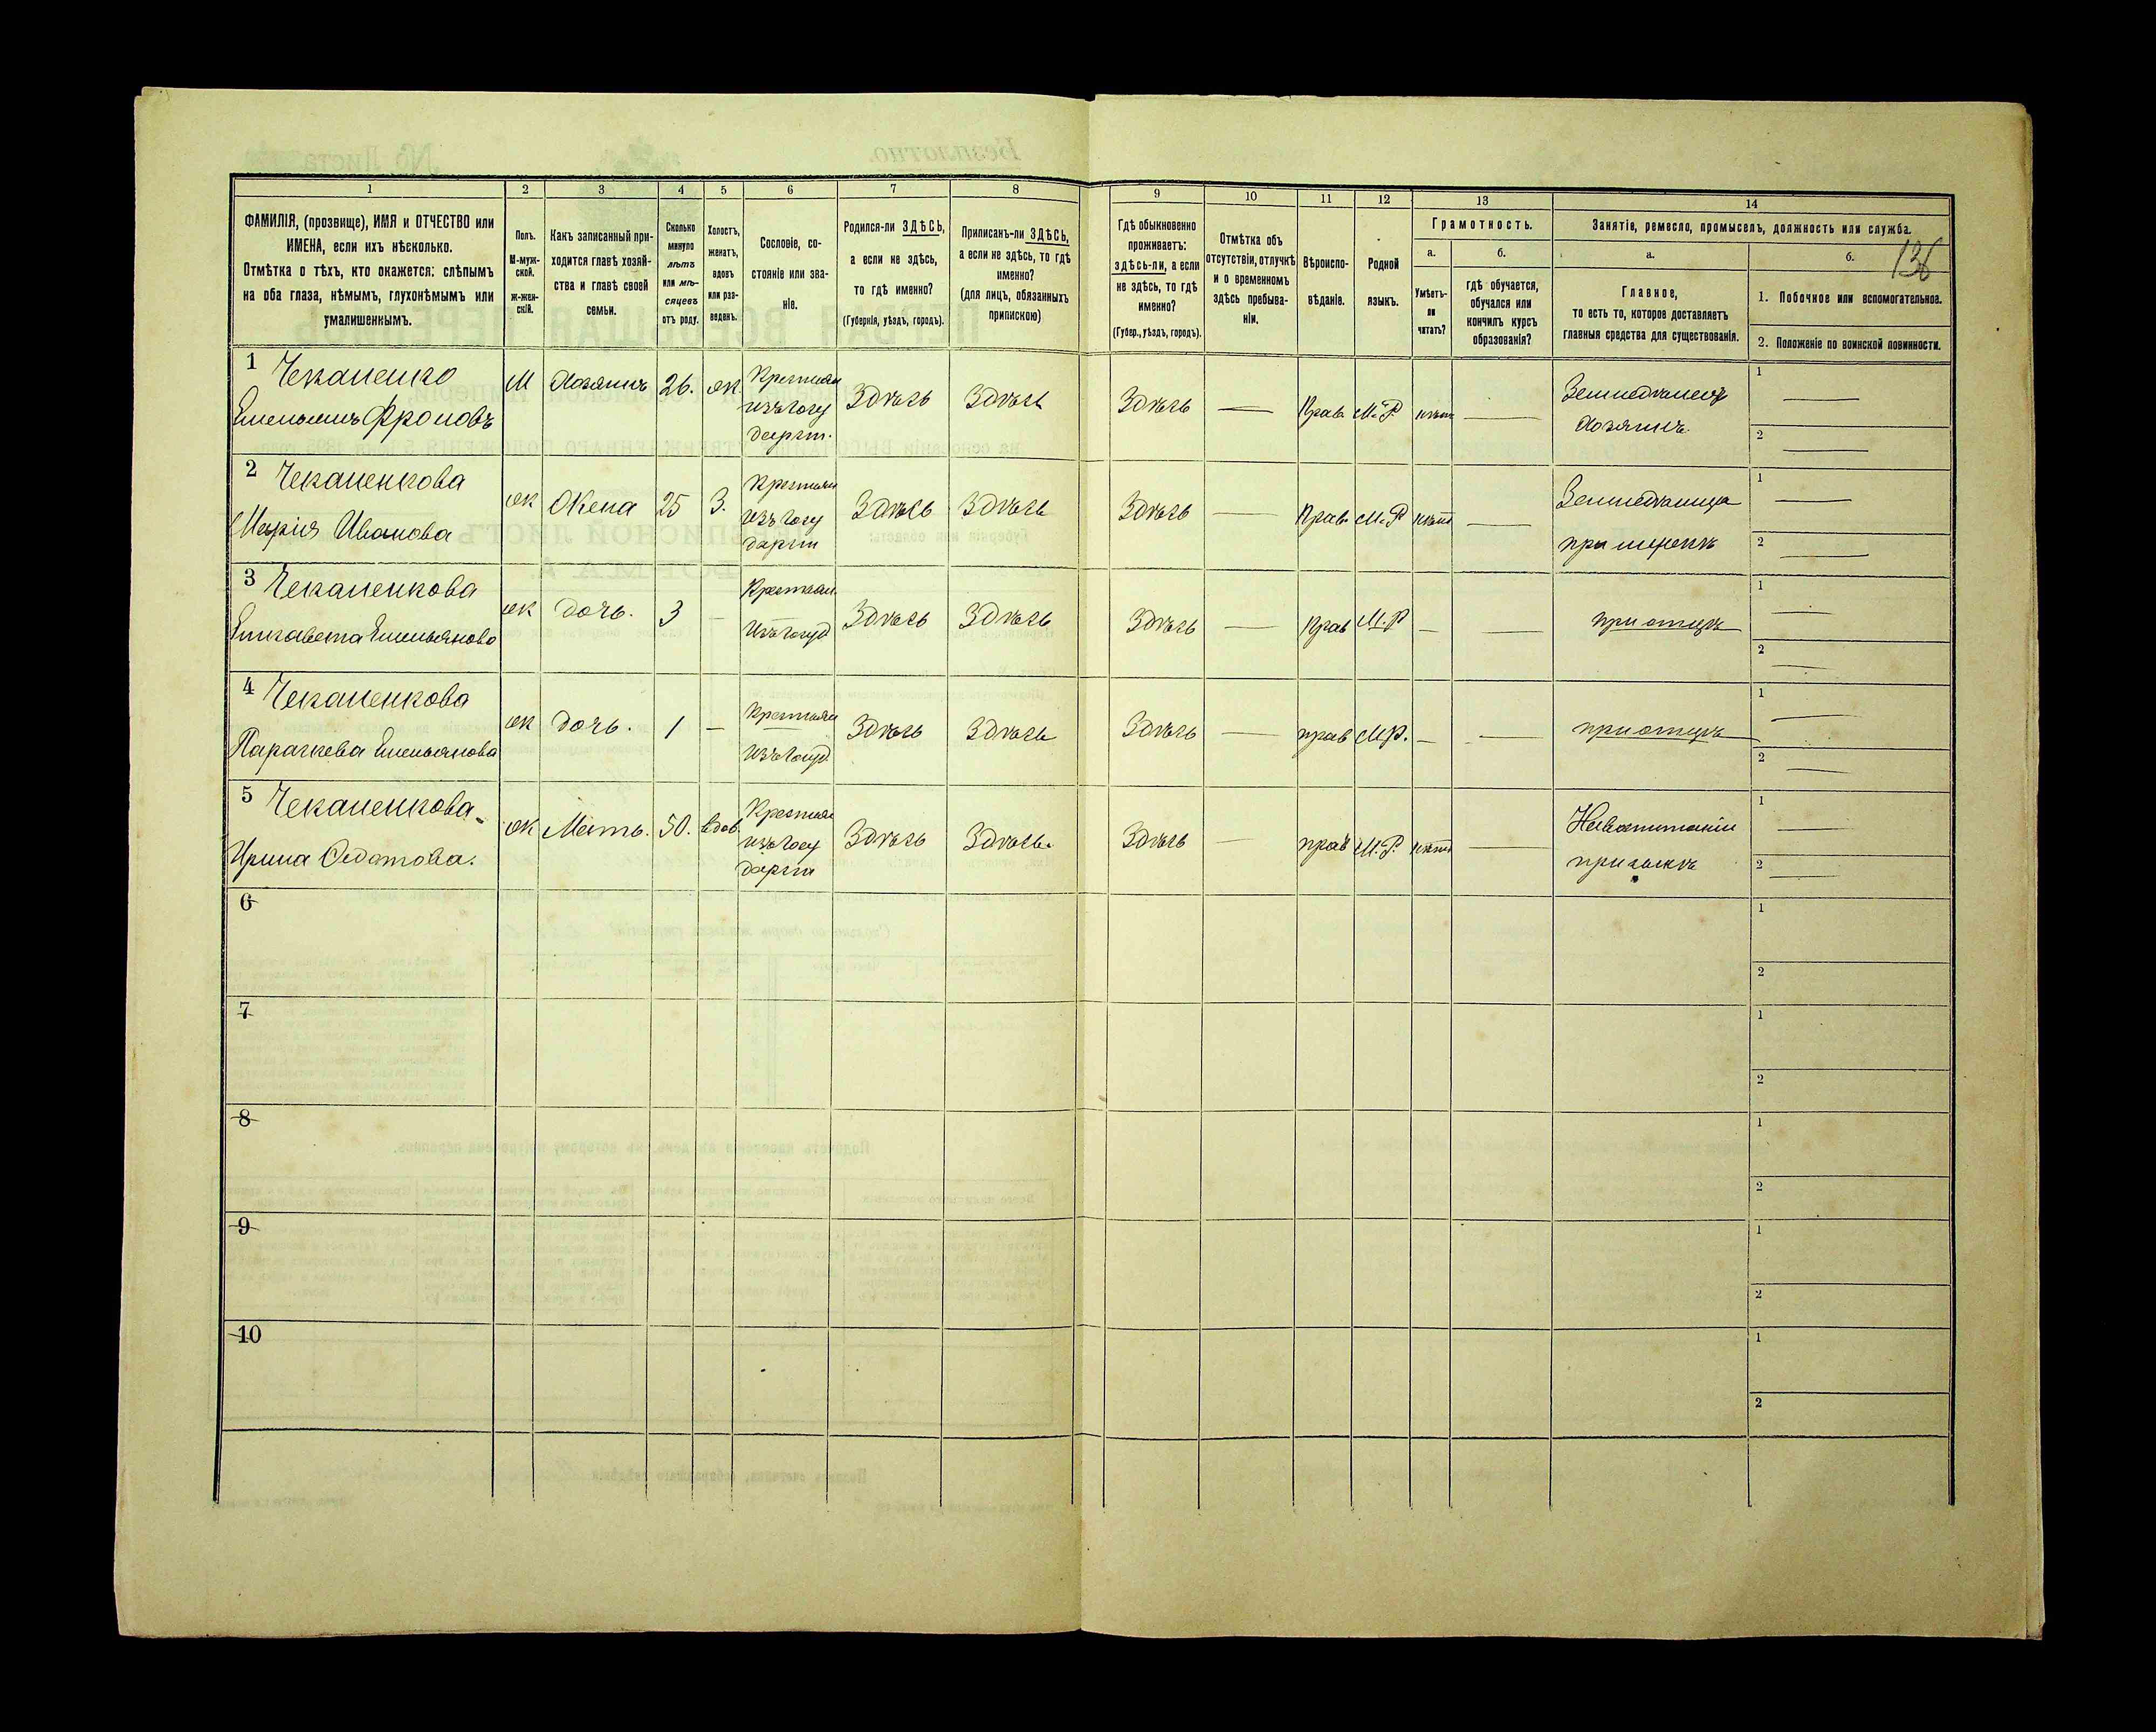 136
1 2 3 4 5 6 7 8 9 10 11 12 13 14
ФАМИЛІЯ, (прозвище), ИМЯ и ОТЧЕСТВО или
ИМЕНА, если ихъ нѣсколько.
Отмѣтка о тѣхъ, кто окажется: слѣпымъ
на оба глаза, нѣмымъ, глухонѣмымъ или
умалишеннымъ.
Полъ.
М-муж-
ской.
ж-жен-
скій.
Какъ записанный при-
ходится главѣ хозяй-
ства и главѣ своей
семьи.
Сколько
минуло
лѣтъ
или мѣ-
сяцевъ
отъ роду.
Холостъ,
женатъ,
вдовъ
или раз-
веденъ.
Сословіе, со-
стояніе или зва-
ніе.
Родился-ли ЗДѢСЬ,
а если не здѣсь,
то гдѣ именно?
(Губернія, уѣздъ, городъ).
Приписанъ-ли ЗДѢСЬ,
а если не здѣсь, то гдѣ
именно?
(для лицъ, обязанныхъ
припискою)
Гдѣ обыкновенно
проживаетъ:
здѣсь-ли, а если
не здѣсь, то гдѣ
именно?
(Губер., уѣздъ, городъ).
Отмѣтка объ
отсутствіи, отлучкѣ
и о временномъ
здѣсь пребыва-
ніи.
Вѣроиспо-
вѣданіе.
Родной
языкъ.
Грамотность.
а.
Умѣетъ-
ли
читать?
б.
гдѣ обучается,
обучался или
кончилъ курсъ
образованія?
Занятіе, ремесло, промыселъ, должность или служба.
а.
Главное,
то есть то, которое доставляетъ
главныя средства для существованія.
б.
1. Побочное или вспомогательное.
2. Положеніе по воинской повинности.
1 Чеканенко М Хозяинъ 26. ж. Крестьян Здѣсь Здѣсь Здѣсь — Прав. М.Р. нѣтъ — Земледѣлецъ 1 —
изъ госу
дарст. Хозяинъ. 2 —
2 Чеканенкова ж Жена 25 З. Крестьян Здѣсь Здѣсь Здѣсь — Прав. М.Р. нѣтъ — Земледѣлица 1 —
Марія Иванова изъ госу
дарст при мужѣ 2 —
3 Чеканенкова ж дочь. 3 — Крестьян. Здѣсь Здѣсь Здѣсь — Прав М.Р — — при отцѣ 1 —
Елисавета Емельянова изъ госуд 2 —
4 Чеканенкова ж дочь. 1 — Крестьян Здѣсь Здѣсь Здѣсь — прав М.Р. — — при отцѣ 1 —
Параскева Емельянова изъ госуд. 2 —
5 Чеканенкова ж Мать. 50. вдов. Крестьян Здѣсь Здѣсь. Здѣсь — прав М.Р. нѣтъ — 1 —
Ирина изъ госу
дарст при сынѣ 2 —
6 1
2
7 1
2
8 1
2
9 1
2
10 1
2